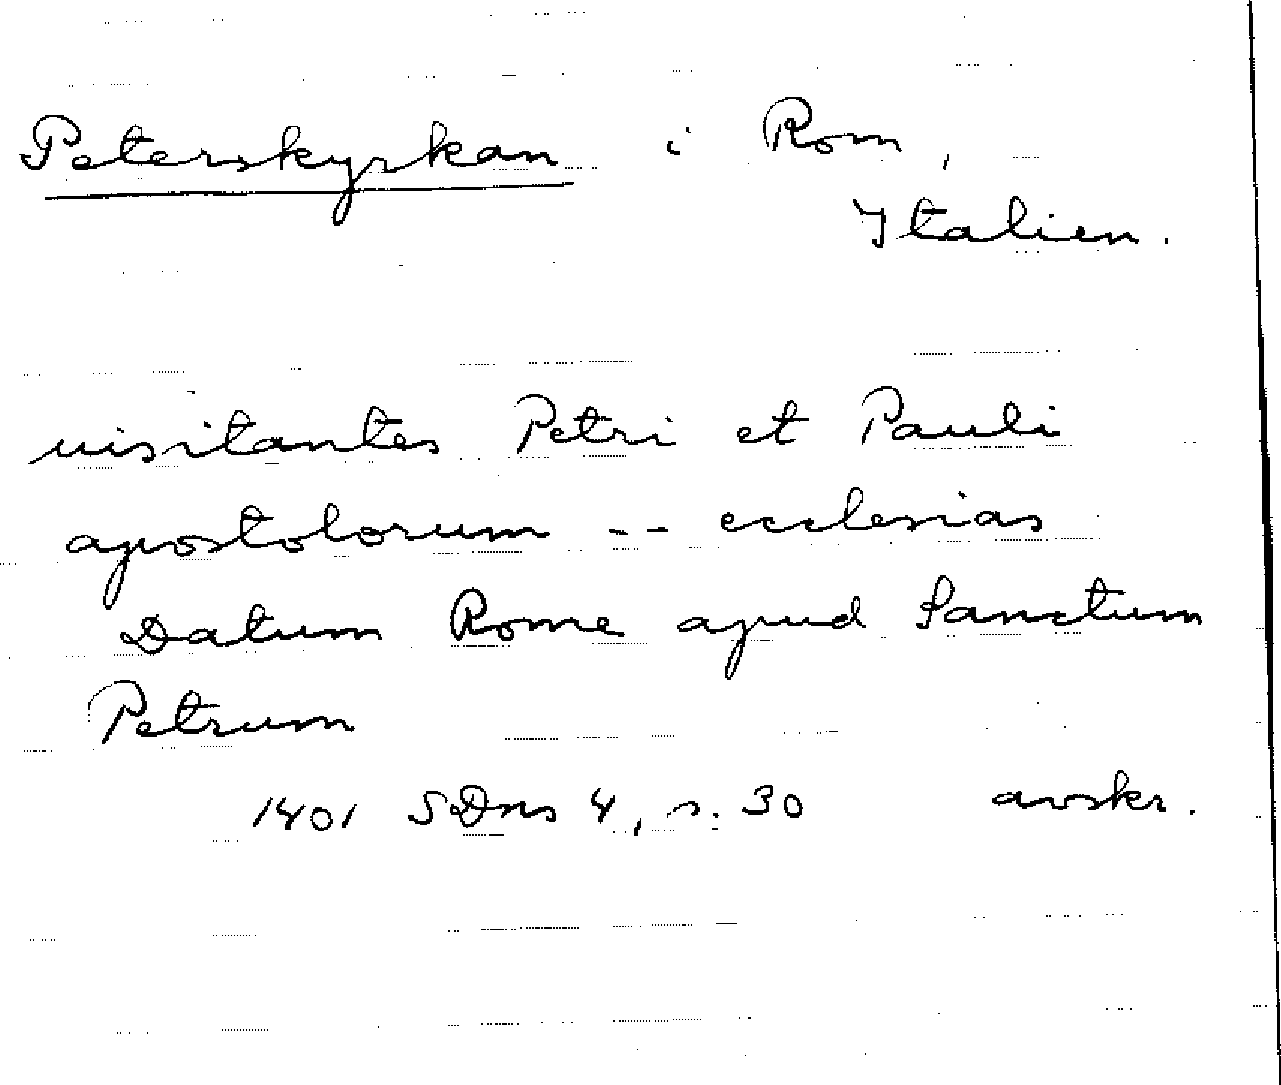 Peterskyrkan i Rom,
Italien.
uisitantes Petri et Pauli
apostolorum -- ecclesias
Datum Rome apud Sanctum
Petrum
1401 SDns 4, s. 30 avskr.